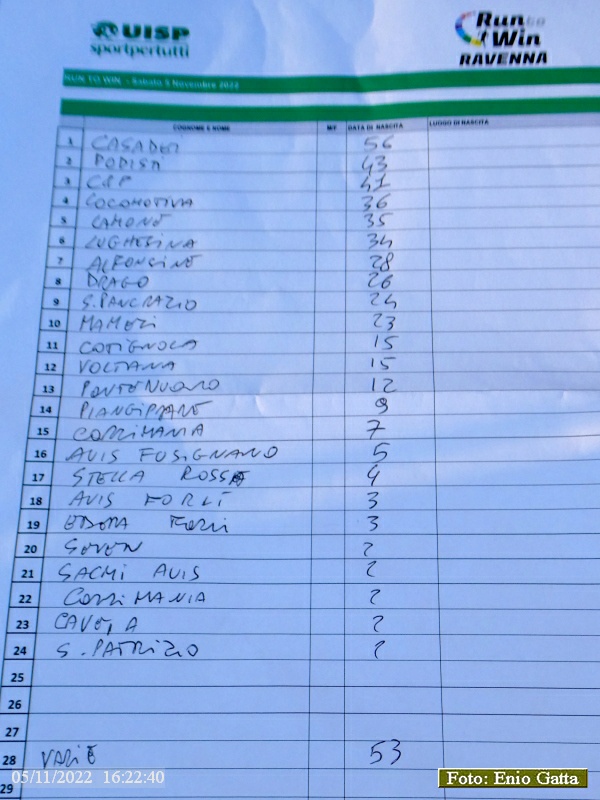 UISP
sportpertutti
Run to Win
RAVENNA
RUN TO WIN - Sabato 5 Novembre 2022
COGNOME E NOME M/F DATA DI NASCITA LUOGO DI NASCITA
1 CASADEI 56
2 PODISTI 43
3 C&P 41
4 LOCOMOTIVA 36
5 LAMONE 35
6 LUGHESINA 34
7 ALFONSINE 28
8 DRAGO 26
9 S. PANCRAZIO 24
10 MAMELI 23
11 COTIGNOLA 15
12 VOLTANA 15
13 PONTENUOVO 12
14 PIANGIPANE 9
15 CORRIMANIA 7
16 AVIS FUSIGNANO 5
17 STELLA ROSSA 4
18 AVIS FORLÌ 3
19 EDERA FORLI 3
20 SEVEN 2
21 SACMI AVIS 2
22 CORRIMANIA 2
23 2
24 S. PATRIZIO 2
25
26
27
28 VARIE 53
29
05/11/2022 16:22:40
Foto: Enio Gatta